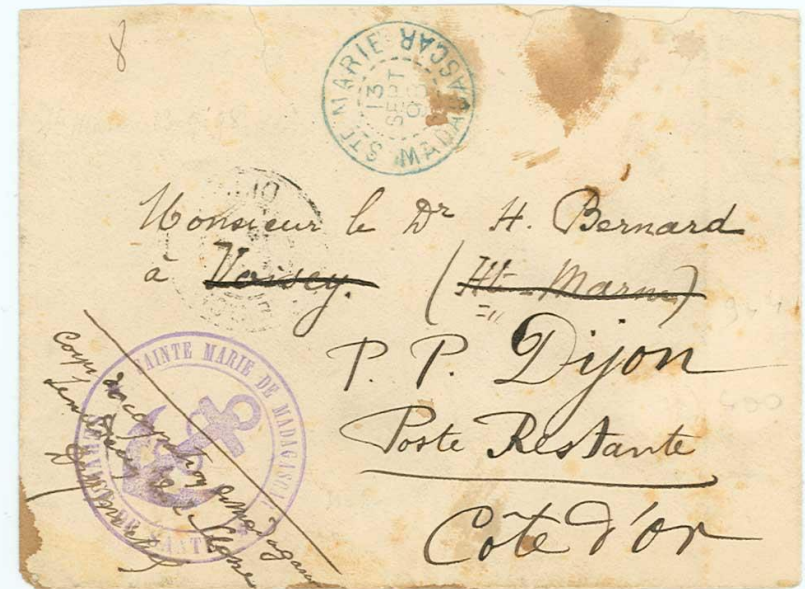 8
STE MARIE MADAGASCAR
13
SEPT
Monsieur le Dr H. Bernard
à Voisey. (Hte Marne)
P. P. Dijon
Poste Restante
Côte d'or
SAINTE MARIE DE MADAGASCAR
Corps d'occupation de Madagascar